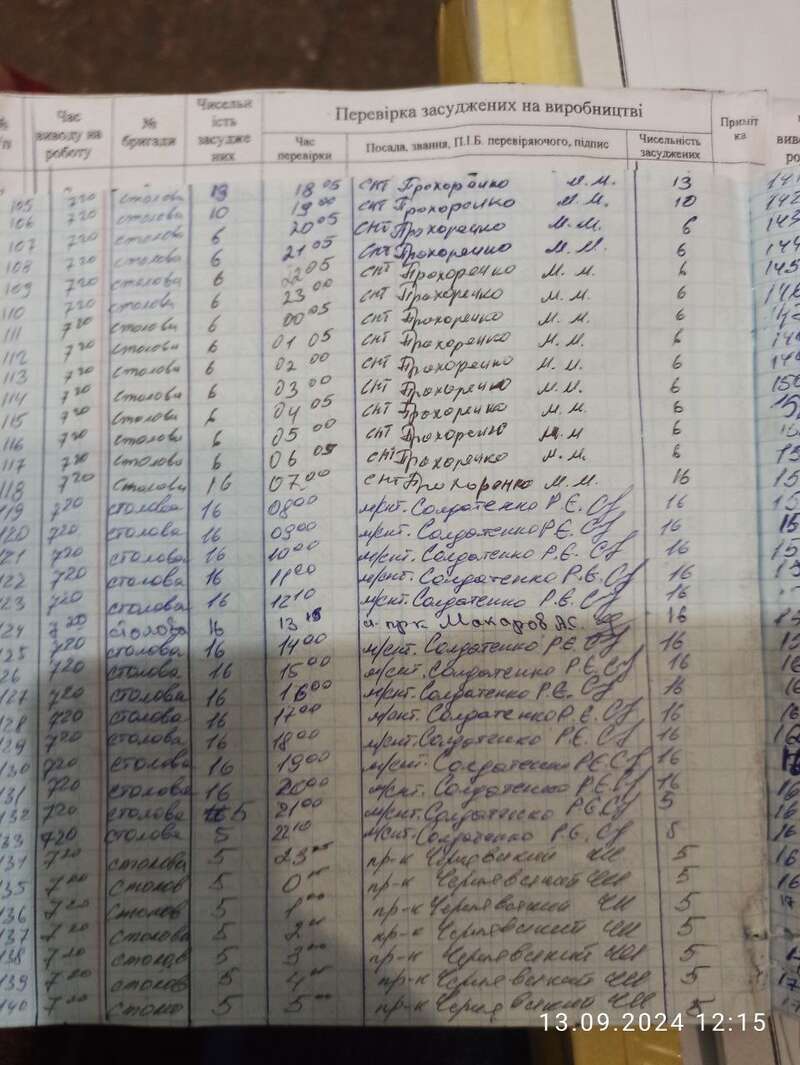 № п/п | Час виводу на роботу | № бригади | Чисельн ість засудже них | Перевірка засуджених на виробництві | Приміт ка
Час перевірки | Посада, звання, П.І.Б. перевіряючого, підпис | Чисельність засуджених
105 7 20 столова 13 18 05 снт Прохоренко М.М. 13
106 7 20 столова 10 19 00 снт Прохоренко М.М. 10
107 7 20 столова 6 20 05 снт Прохоренко М.М. 6
108 7 20 столова 6 21 05 снт Прохоренко М.М. 6
109 7 20 столова 6 22 05 снт Прохоренко М.М. 6
110 7 20 столова 6 23 00 снт Прохоренко М.М. 6
111 7 20 столова 6 00 05 снт Прохоренко М.М. 6
112 7 20 столова 6 01 05 снт Прохоренко М.М. 6
113 7 20 столова 6 02 00 снт Прохоренко М.М. 6
114 7 20 столова 6 03 00 снт Прохоренко М.М. 6
115 7 20 столова 6 04 05 снт Прохоренко М.М. 6
116 7 20 столова 6 05 00 снт Прохоренко М.М 6
117 7 20 столова 6 06 05 снт Прохоренко М.М. 6
118 7 20 столова 16 07 00 снт Прохоренко М.М. 16
119 7 20 столова 16 08 00 м/снт. Солдатенко Р.Є. 16
120 7 20 столова 16 09 00 м/снт. Солдатенко Р.Є. 16
121 7 20 столова 16 10 00 м/снт. Солдатенко Р.Є. 16
122 7 20 столова 16 11 00 м/снт. Солдатенко Р.Є. 16
123 7 20 столова 16 12 10 м/снт. Солдатенко Р.Є. 16
124 7 20 столова 16 13 пр-к Макаров А.С. 16
125 7 20 столова 16 14 00 м/снт. Солдатенко Р.Є. 16
126 7 20 столова 16 15 00 м/снт. Солдатенко Р.Є. 16
127 7 20 столова 16 16 00 м/снт. Солдатенко Р.Є. 16
128 7 20 столова 16 17 00 м/снт. Солдатенко Р.Є. 16
129 7 20 столова 16 18 00 м/снт. Солдатенко Р.Є. 16
130 7 20 столова 16 19 00 м/снт. Солдатенко Р.Є. 16
131 7 20 столова 16 20 00 м/снт. Солдатенко Р.Є. 16
132 7 20 столова 5 21 00 м/снт. Солдатенко Р.Є. 5
133 7 20 столова 5 22 10 м/снт. Солдатенко Р.Є. 5
134 7 20 столова 5 23 пр-к 5
135 7 20 столов 5 0 пр-к 5
136 7 20 столов 5 1 пр-к 5
137 7 20 столова 5 2 пр-к 5
138 7 20 столов 5 3 пр-к 5
139 7 20 столов 5 4 пр-к 5
140 7 20 столо 5 5 пр-к 5
13.09.2024 12:15